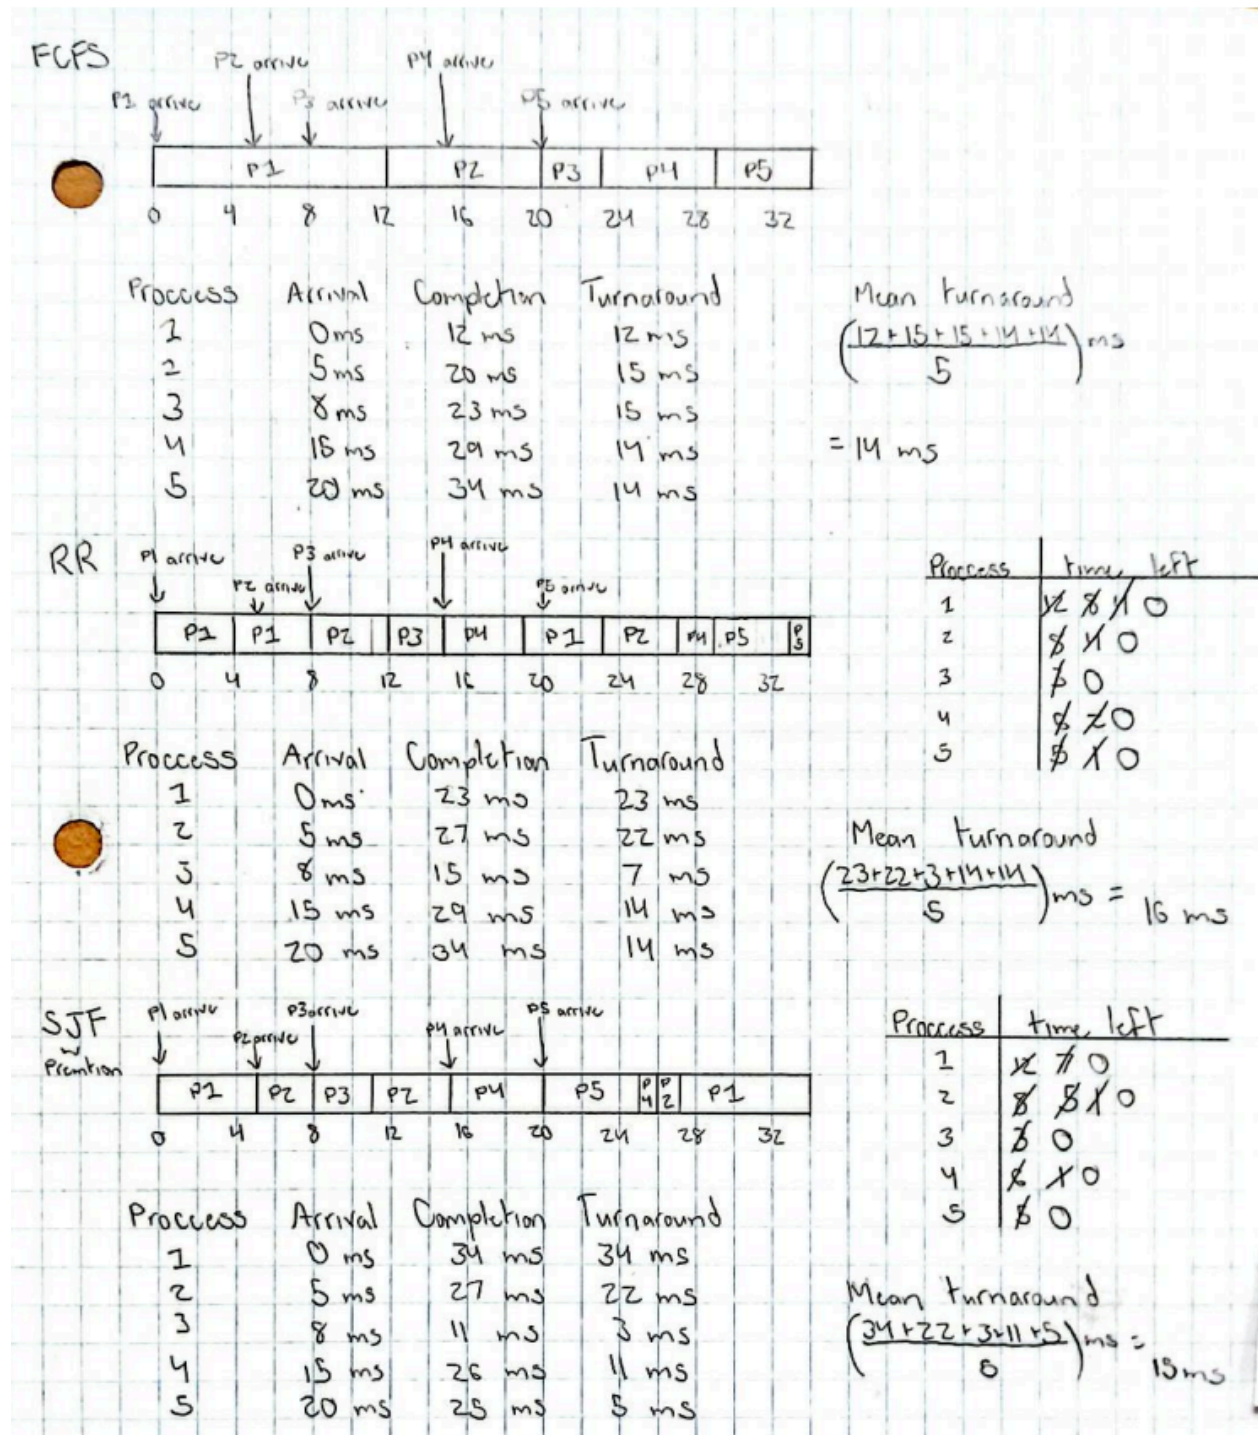 FCFS
P2 arrive P4 arrive
P1 arrive P3 arrive P5 arrive
P1 P2 P3 P4 P5
0 4 8 12 16 20 24 28 32
Proccess Arrival Completion Turnaround Mean turnaround
1 0ms 12 ms 12 ms (12+15+15+14+14 / 5) ms
2 5ms 20 ms 15 ms
3 8ms 23 ms 15 ms
4 15 ms 29 ms 14 ms = 14 ms
5 20 ms 34 ms 14 ms
RR
P1 arrive P3 arrive P4 arrive
P2 arrive P5 arrive
P1 P1 P2 P3 P4 P1 P2 P4 P5 P5
0 4 8 12 16 20 24 28 32
Proccess time left
1 12 8 4 0
2 8 4 0
3 3 0
4 6 2 0
5 5 1 0
Proccess Arrival Completion Turnaround
1 0ms 23 ms 23 ms
2 5 ms 27 ms 22 ms
3 8 ms 15 ms 7 ms
4 15 ms 29 ms 14 ms
5 20 ms 34 ms 14 ms
Mean turnaround
(23+22+3+14+14 / 5) ms = 16 ms
SJF
P1 arrive P3 arrive P5 arrive
P2 arrive P4 arrive
P1 P2 P3 P2 P4 P5 P4 P2 P1
0 4 8 12 16 20 24 28 32
Proccess time left
1 12 7 0
2 8 5 1 0
3 3 0
4 6 1 0
5 5 0
Proccess Arrival Completion Turnaround
1 0 ms 34 ms 34 ms
2 5 ms 27 ms 22 ms
3 8 ms 11 ms 3 ms
4 15 ms 26 ms 11 ms
5 20 ms 25 ms 5 ms
Mean turnaround
(34+22+3+11+5 / 5) ms = 15ms